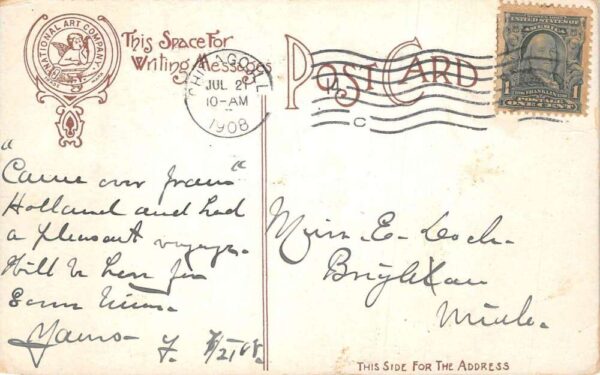 INTERNATIONAL ART COMPANY
This Space For
Writing Messages
POST CARD
CHICAGO, ILL.
JUL 21
10-AM
1908
C
UNITED STATES OF AMERICA
1 FRANKLIN 1
POSTAGE
ONE CENT
"Came over from"
Holland and had
a pleasant voyage.
Will be here for
some time.
Yours-
F. 7/21 08.
Miss. E. Loch.
Brighton
Mich.
THIS SIDE FOR THE ADDRESS